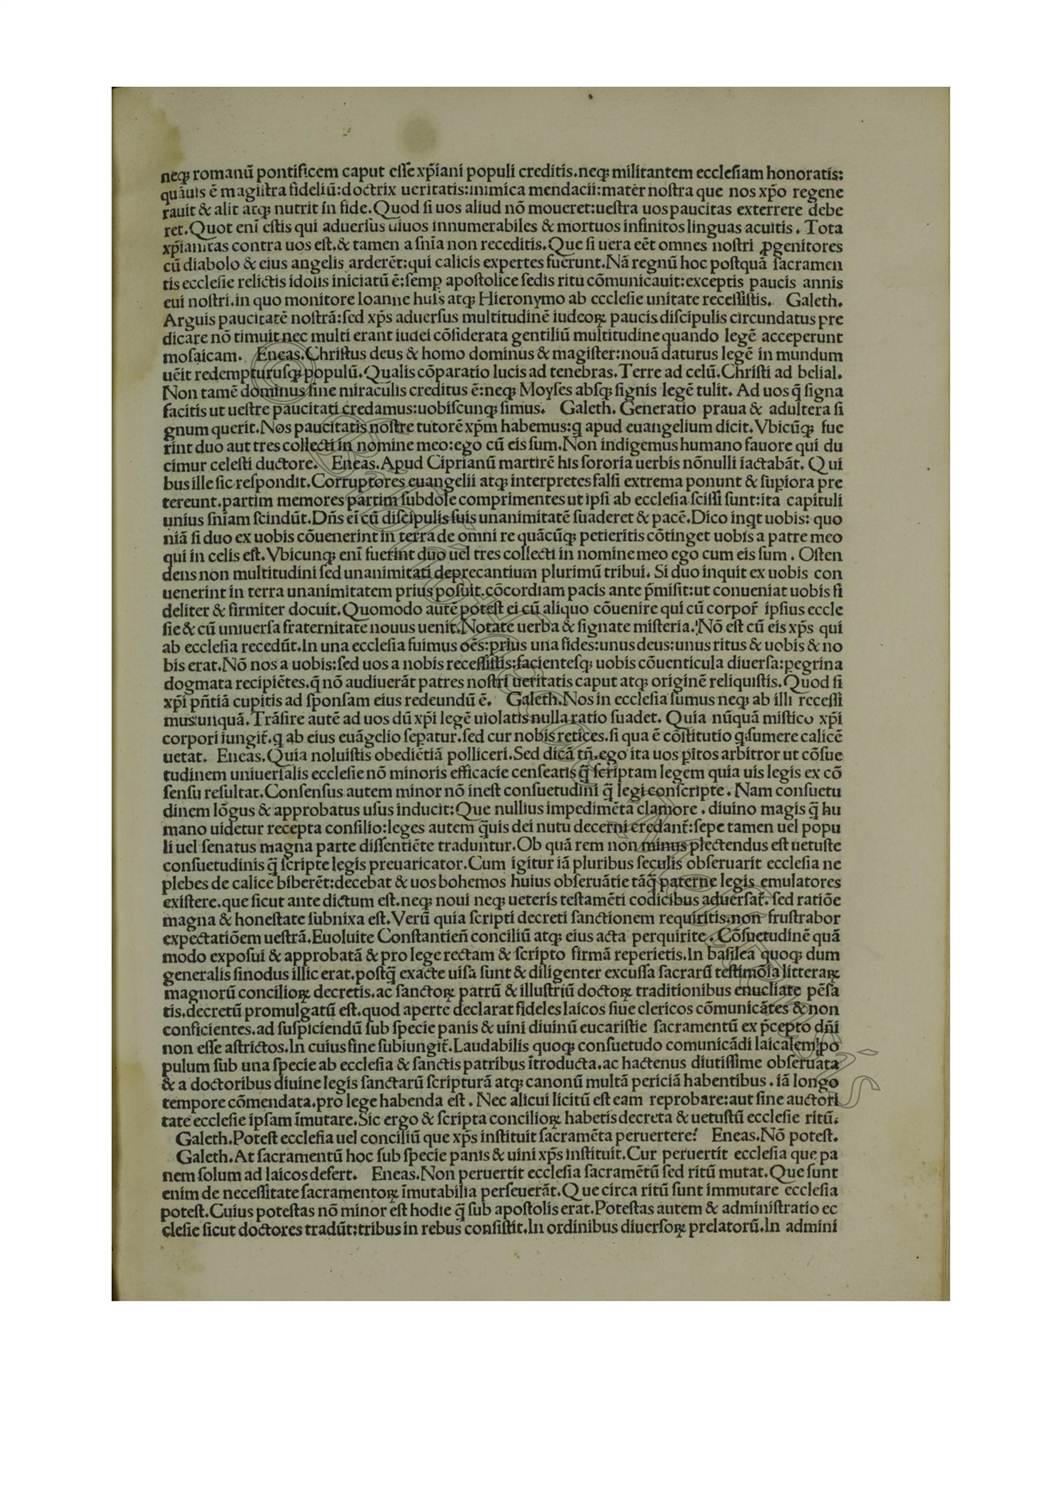 neqꝫ romanū pontificem caput eſſe xp̄iani populi creditis.neqꝫ militantem eccleſiam honoratis:
quāuis ē magiſtra fideliū:doctrix ueritatis:inimica mendacii:mater noſtra que nos xp̄o regene
rauit & alit atqꝫ nutrit in fide.Quod ſi uos aliud nō moueret:ueſtra uos paucitas exterrere debe
ret.Quot eni eſtis qui aduerſus uiuos innumerabiles & mortuos infinitos linguas acuitis. Tota
xp̄ianitas contra uos eſt.& tamen a ſnīa non receditis.Que ſi uera eēt omnes noſtri ꝓgenitores
cū diabolo & eius angelis arderēt:qui calicis expertes fuerunt.Nā regnū hoc poſtquā ſacramen
tis eccleſie relictis idolis iniciatū ē:ſemꝑ apoſtolice ſedis ritu cōmunicauit:exceptis paucis annis
eui noſtri.in quo monitore Ioanne huſs atqꝫ Hieronymo ab eccleſie unitate receſſiſtis. Galeth.
Arguis paucitatē noſtrā:ſed xp̄s aduerſus multitudinē iudeoꝝ paucis diſcipulis circundatus pre
dicare nō timuit nec multi erant iudei cōſiderata gentiliū multitudine quando legē acceperunt
moſaicam. Eneas.Chriſtus deus & homo dominus & magiſter:nouā daturus legē in mundum
uēit redempturuſqꝫ populū.Qualis cōparatio lucis ad tenebras.Terre ad celū.Chriſti ad belial.
Non tamē dominus ſine miraculis creditus ē:neqꝫ Moyſes abſqꝫ ſignis legē tulit. Ad uos q̄ ſigna
facitis ut ueſtre paucitati credamus:uobiſcunqꝫ ſimus. Galeth. Generatio praua & adultera ſi
gnum querit.Nos paucitatis noſtre tutorē xp̄m habemus:q apud euangelium dicit.Vbicūqꝫ fue
rint duo aut tres collecti in nomine meo:ego cū eis ſum.Non indigemus humano fauore qui du
cimur celeſti ductore. Eneas.Apud Ciprianū martirē his ſororia uerbis nōnulli iactabāt. Qui
bus ille ſic reſpondit.Corruptores euangelii atqꝫ interpretes falſi extrema ponunt & ſuꝑiora pre
tereunt.partim memores partim ſubdole comprimentes ut ipſi ab eccleſia ſciſſi ſunt:ita capituli
unius ſnīam ſcindūt.Dn̄s ei cū diſcipulis ſuis unanimitatē ſuaderet & pacē.Dico inqt uobis: quo
niā ſi duo ex uobis cōuenerint in terra de omni re quācūqꝫ petieritis cōtinget uobis a patre meo
qui in celis eſt.Vbicunqꝫ enī fuerint duo uel tres collecti in nomine meo ego cum eis ſum . Oſten
dens non multitudini ſed unanimitati deprecantium plurimū tribui. Si duo inquit ex uobis con
uenerint in terra unanimitatem prius poſuit.cōcordiam pacis ante p̄miſit:ut conueniat uobis fi
deliter & firmiter docuit.Quomodo autē poteſt ei cū aliquo cōuenire qui cū corpor̄ ipſius eccle
ſie & cū uniuerſa fraternitate nouus uenit.Notate uerba & ſignate miſteria. Nō eſt cū eis xp̄s qui
ab eccleſia recedūt.In una eccleſia fuimus oēs:prius una fides:unus deus:unus ritus & uobis & no
bis erat.Nō nos a uobis:ſed uos a nobis receſſiſtis:facienteſqꝫ uobis cōuenticula diuerſa:ꝑegrina
dogmata recipiētes.q̄ nō audiuerāt patres noſtri ueritatis caput atqꝫ originē reliquiſtis.Quod ſi
xp̄i pn̄tiā cupitis ad ſponſam eius redeundū ē. Galeth.Nos in eccleſia ſumus neqꝫ ab illi receſſi
mus unquā.Trāſire autē ad uos dū xp̄i legē uiolatis nulla ratio ſuadet. Quia nūquā miſtico xp̄i
corpori iungit̄.q ab eius euāgelio ſepatur.ſed cur nobis retices.ſi qua ē cōſtitutio q ſumere calicē
uetat. Eneas.Quia noluiſtis obediētiā polliceri.Sed dicā tn̄.ego ita uos ꝑitos arbitror ut cōſue
tudinem uniuerſalis eccleſie nō minoris efficacie cenſeatis q̄ ſcriptam legem quia uis legis ex cō
ſenſu reſultat.Conſenſus autem minor nō ineſt conſuetudini q̄ legi conſcripte . Nam conſuetu
dinem lōgus & approbatus uſus inducit:Que nullius impedimēta clamore . diuino magis q̄ hu
mano uidetur recepta conſilio:leges autem q̄uis dei nutu decerni credant̄:ſepe tamen uel popu
li uel ſenatus magna parte diſſentiēte traduntur.Ob quā rem non minus plectendus eſt uetuſte
conſuetudinis q̄ ſcripte legis preuaricator.Cum igitur iā pluribus ſeculis obſeruarit eccleſia ne
plebes de calice biberēt:decebat & uos bohemos huius obſeruātie tāq̄ paterne legis emulatores
exiſtere.que ſicut ante dictum eſt.neqꝫ noui neqꝫ ueteris teſtamēti codicibus aduerſat̄. ſed ratiōe
magna & honeſtate ſubnixa eſt.Verū quia ſcripti decreti ſanctionem requiritis.non fruſtrabor
expectatiōem ueſtrā.Euoluite Conſtantien̄ conciliū atqꝫ eius acta perquirite . Cōſuetudinē quā
modo expoſui & approbatā & pro lege rectam & ſcripto firmā reperietis.In baſilea quoqꝫ dum
generalis ſinodus illic erat.poſtq̄ exacte uiſa ſunt & diligenter excuſſa ſacrarū teſtimōia litteraꝝ
magnorū concilioꝝ decretis.ac ſanctoꝝ patrū & illuſtriū doctoꝝ traditionibus enucliate pēſa
tis.decretū promulgatū eſt.quod aperte declarat fideles laicos ſiue clericos cōmunicātes & non
conficientes.ad ſuſpiciendū ſub ſpecie panis & uini diuinū eucariſtie ſacramentū ex p̄cepto dn̄i
non eſſe aſtrictos.In cuius fine ſubiungit̄.Laudabilis quoqꝫ conſuetudo comunicādi laicalem po
pulum ſub una ſpecie ab eccleſia & ſanctis patribus ītroducta.ac hactenus diutiſſime obſeruata
& a doctoribus diuine legis ſanctarū ſcripturā atqꝫ canonū multā periciā habentibus . iā longo
tempore cōmendata.pro lege habenda eſt . Nec alicui licitū eſt eam reprobare:aut ſine auctori
tate eccleſie ipſam īmutare.Sic ergo & ſcripta concilioꝝ habetis decreta & uetuſtū eccleſie ritū.
Galeth.Poteſt eccleſia uel conciliū que xp̄s inſtituit ſacramēta peruertere? Eneas.Nō poteſt.
Galeth.At ſacramentū hoc ſub ſpecie panis & uini xp̄s inſtituit.Cur peruertit eccleſia que pa
nem ſolum ad laicos defert. Eneas.Non peruertit eccleſia ſacramētū ſed ritū mutat.Que ſunt
enim de neceſſitate ſacramentoꝝ īmutabilia perſeuerāt.Que circa ritū ſunt immutare eccleſia
poteſt.Cuius poteſtas nō minor eſt hodie q̄ ſub apoſtolis erat.Poteſtas autem & adminiſtratio ec
cleſie ſicut doctores tradūt:tribus in rebus conſiſtit.In ordinibus diuerſoꝝ prelatorū.In admini